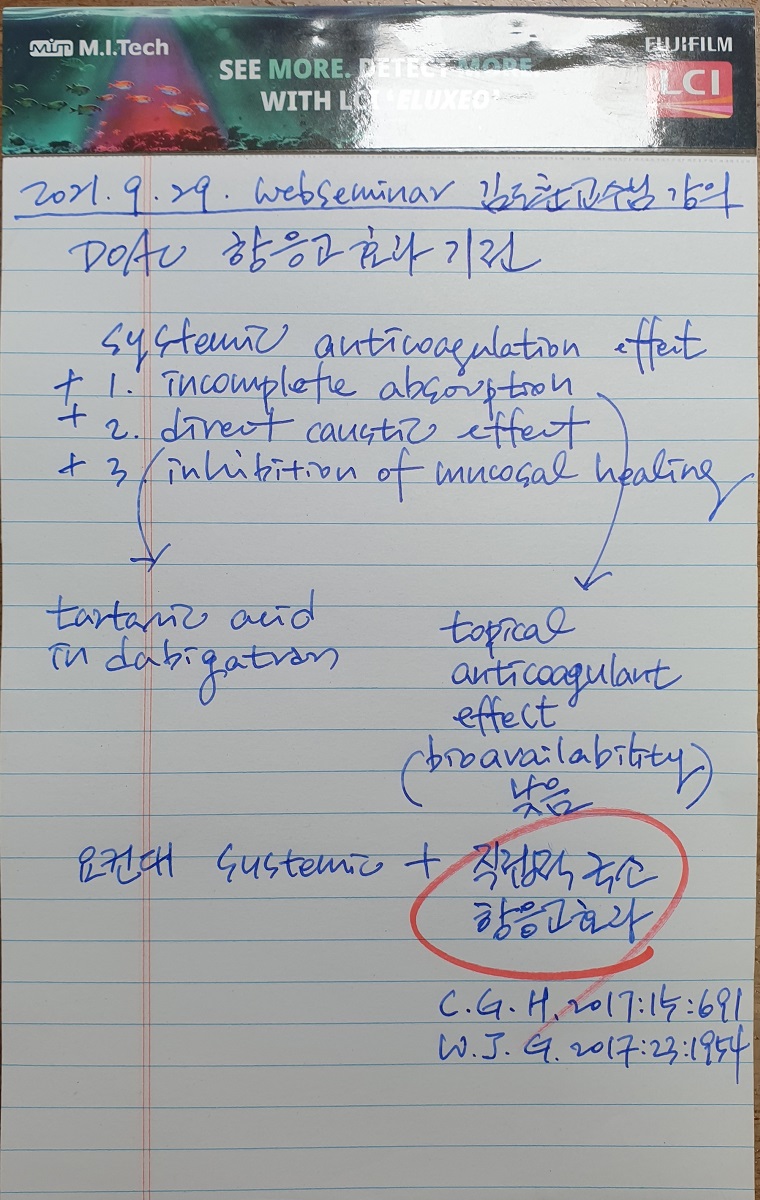 mitn M.I.Tech
FUJIFILM
SEE MORE. DETECT MORE.
WITH LCI 'ELUXEO'
LCI
2021. 9. 29. webseminar 김도훈교수님 강의
DOAC 항응고효과 기전
systemic anticoagulation effect
+ 1. incomplete absorption
+ 2. direct caustic effect
+ 3 inhibition of mucosal healing
tartaric acid
in dabigatran
topical
anticoagulant
effect
(bioavailability)
낮음
요컨대 systemic + 직접적 국소
항응고효과
C.G.H. 2017:15:691
W.J.G. 2017:23:1954